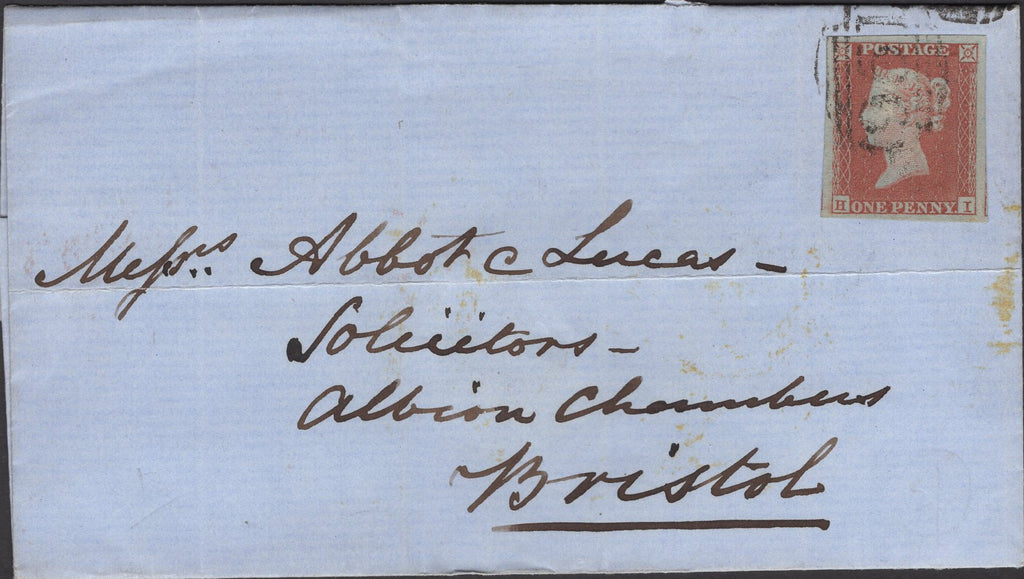 POSTAGE
H ONE PENNY. I
Messrs. Abbot & Lucas -
Solicitors -
Albion Chambers
Bristol